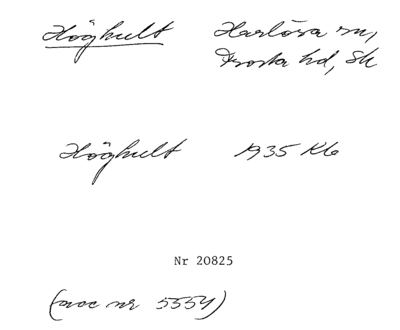 Höghult Harlösa sn,
Frosta hd, Sk
Höghult 1935 Kb
Nr 20825
(acc nr 5554)